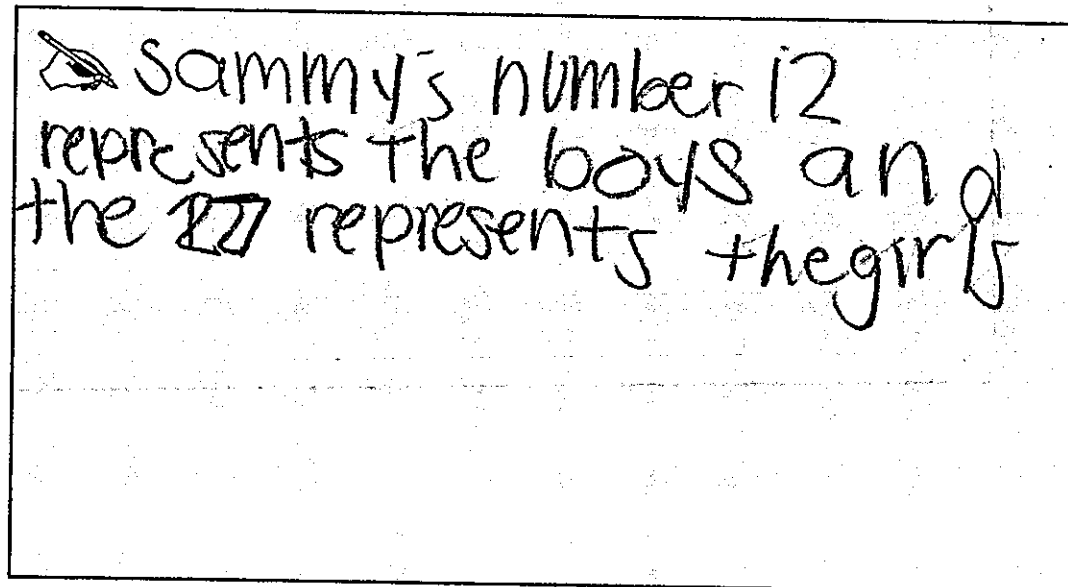 Sammy's number 12
represents the boys and
the represents the girls